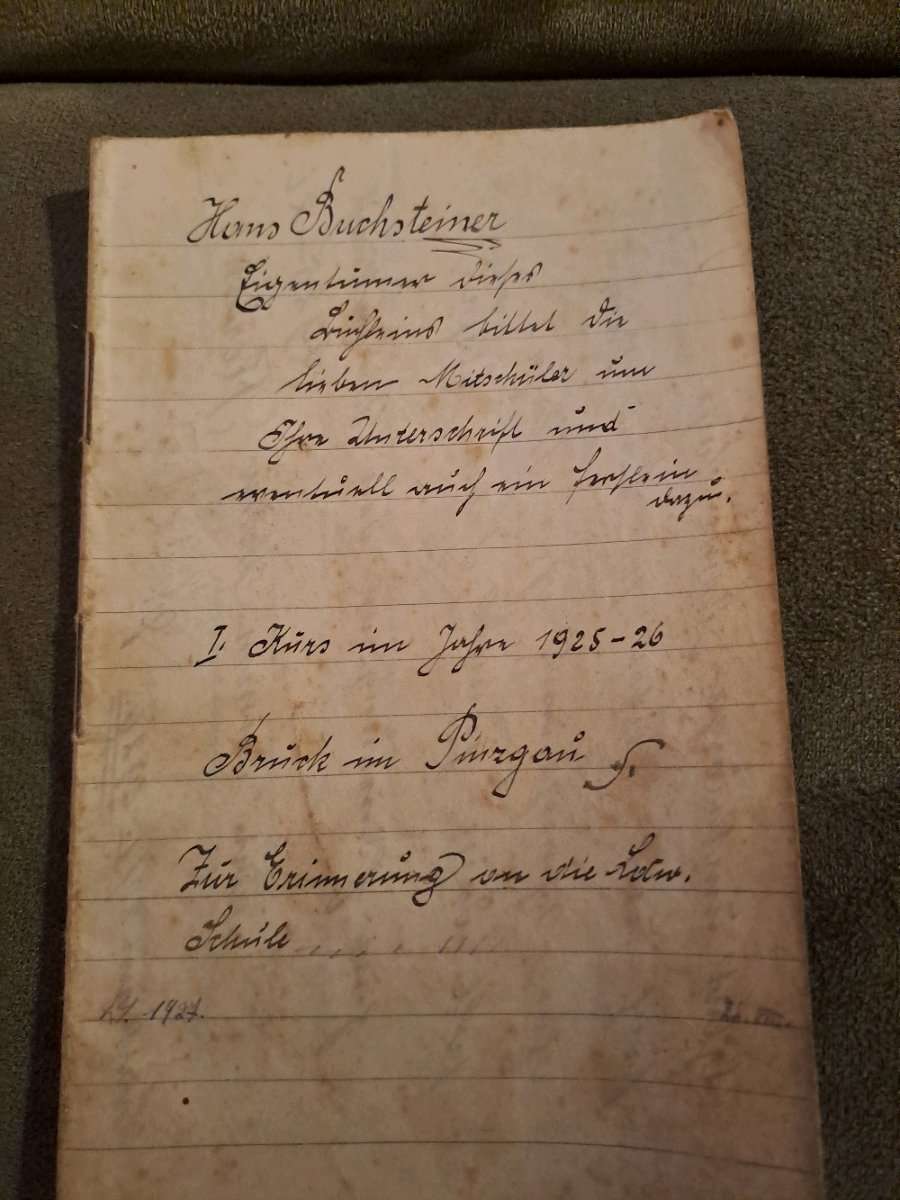 Hans Buchsteiner
Eigentümer dieses
Büchleins bittet die
lieben Mitschüler um
Ihre Unterschrift und
eventuell auch ein Ferslein
dazu.
I. Kurs im Jahre 1925-26
Bruck im Pinzgau
Zur Erinnerung an die Ldw.
Schule
1927.